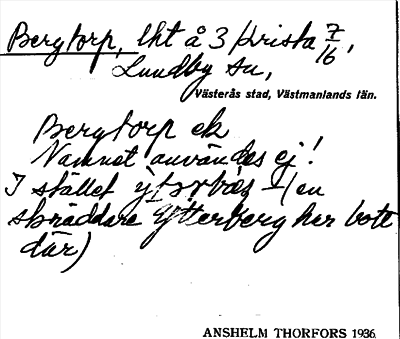 Bergtorp, lht å 3/Krista 7/16,
Lundby sn,
Västerås stad, Västmanlands län.
Bergtorp ek
Namnet användes ej!
I stället (en
skräddare Ytterberg har bott
där)
ANSHELM THORFORS 1936.